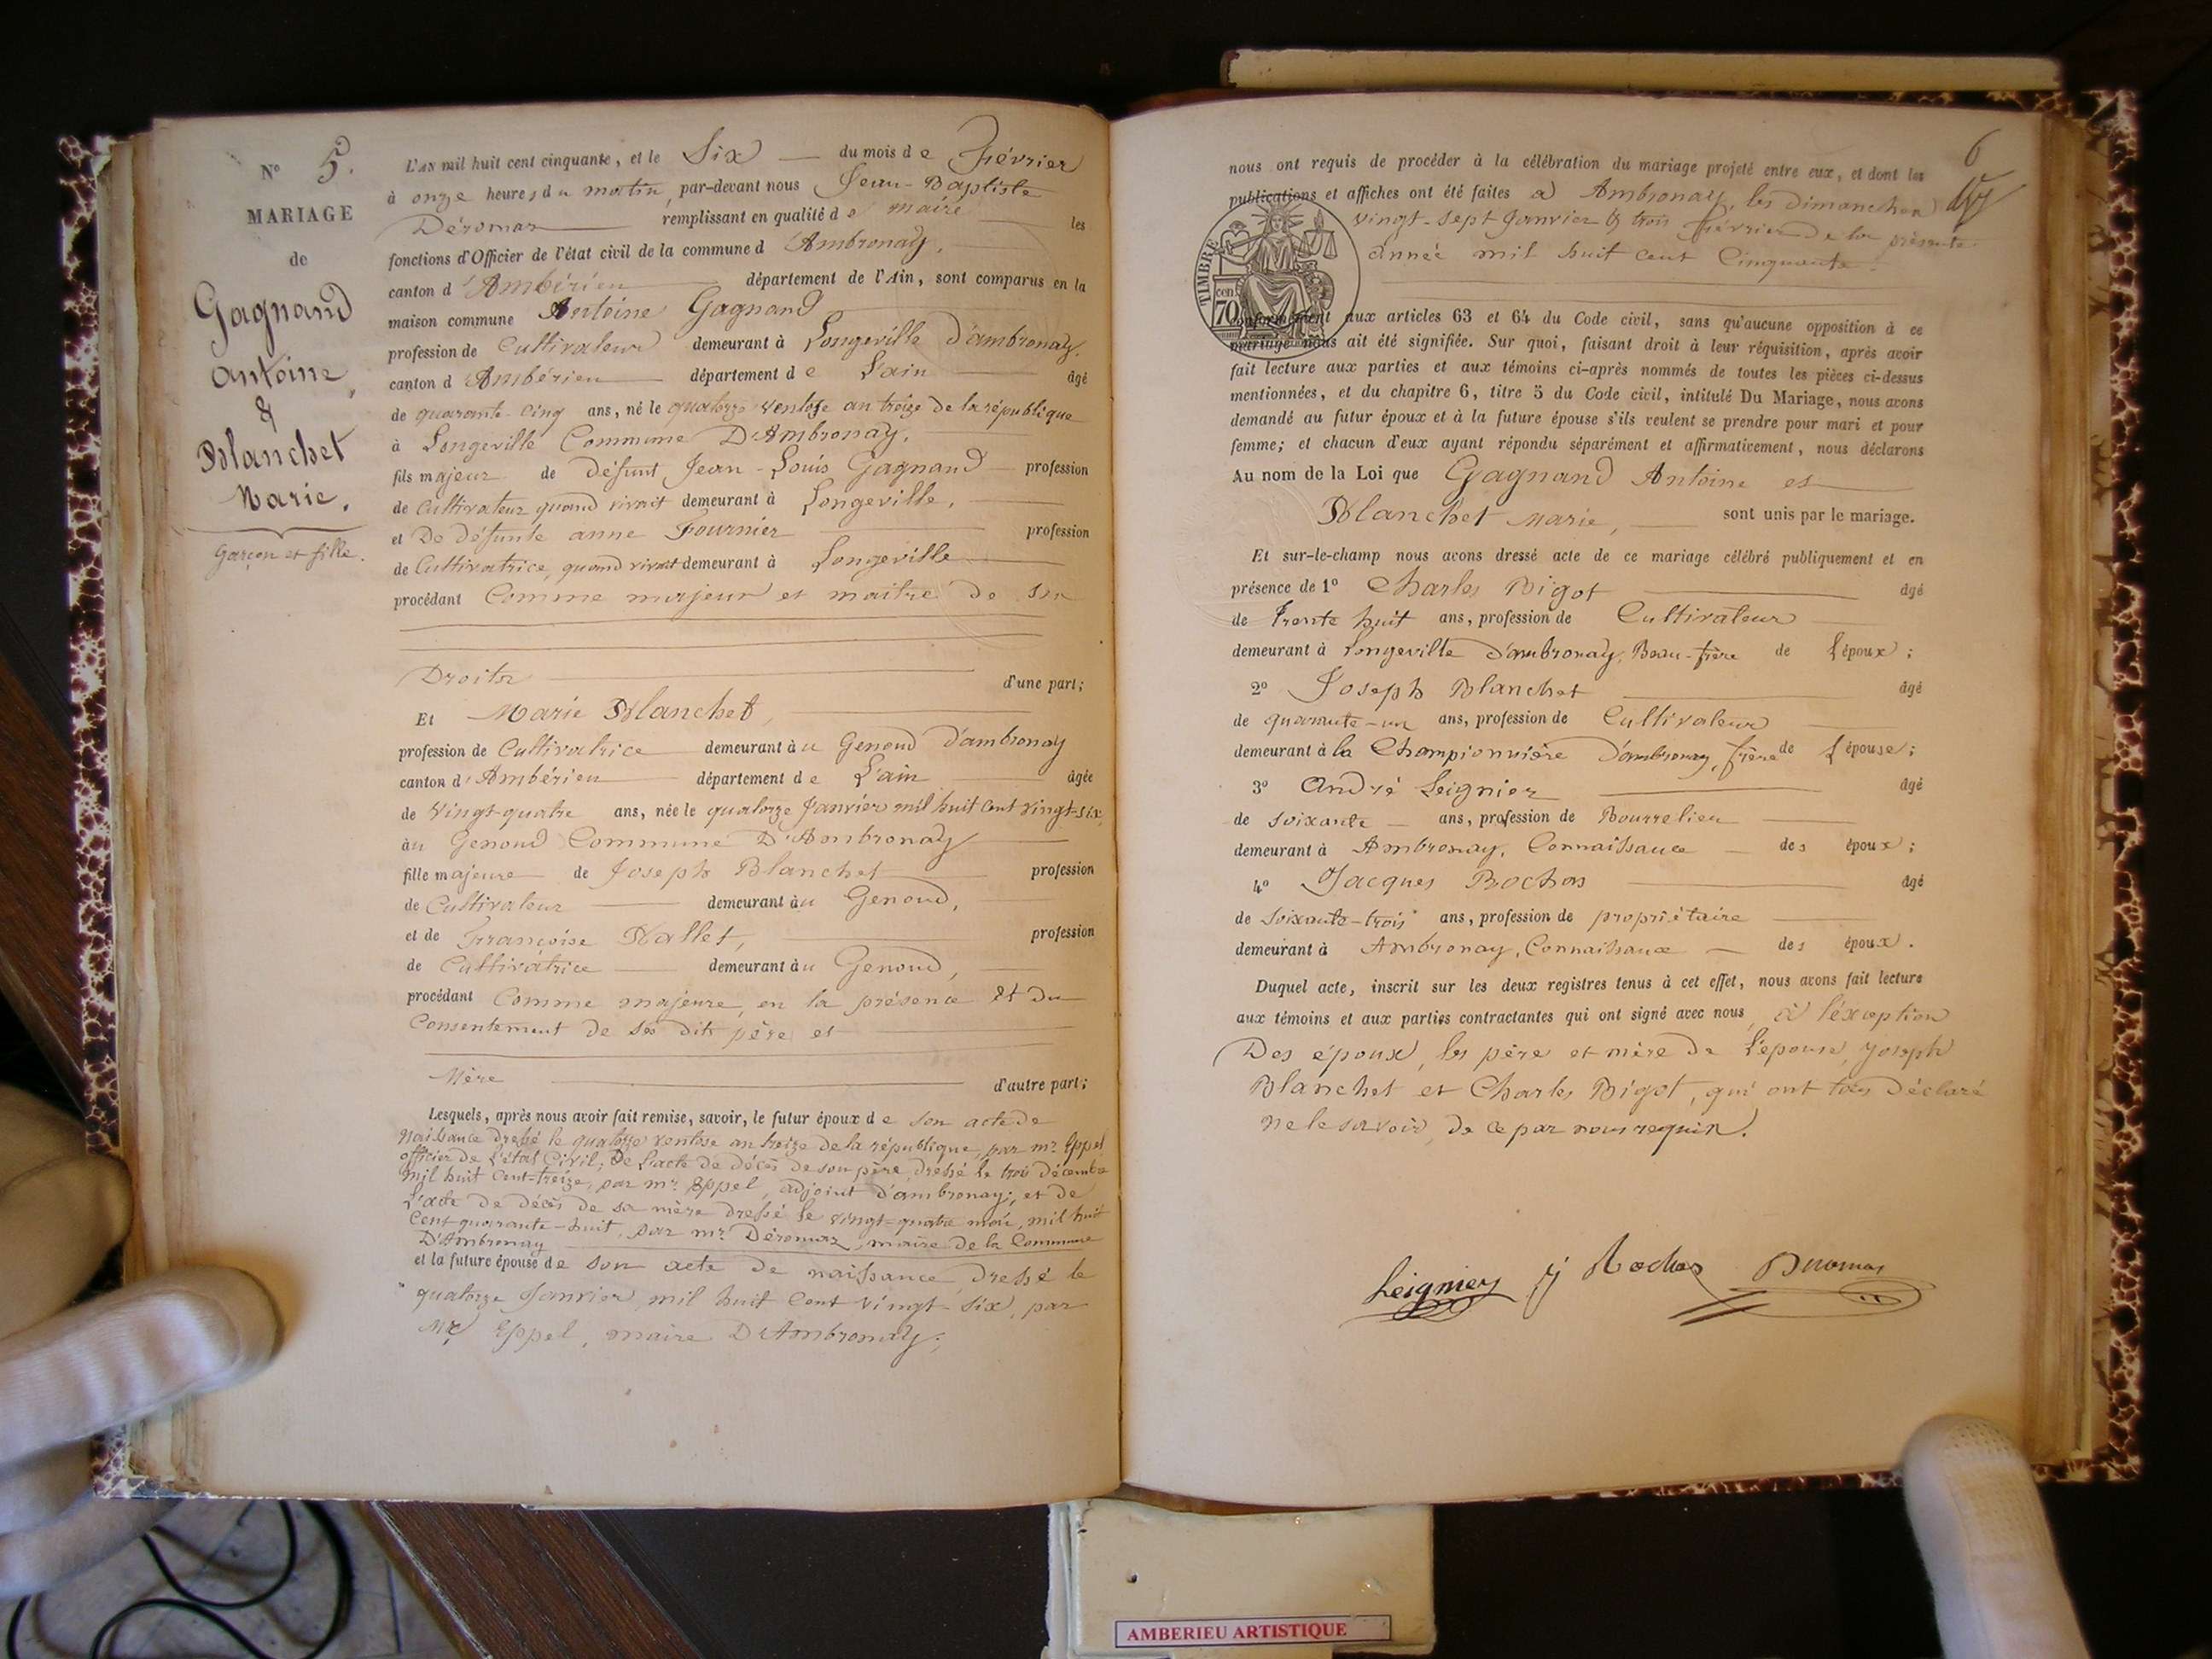 N° 5.
MARIAGE
de
Gagnand
Antoine,
&
Blanchet
Marie.
Garçon et fille.
L'AN mil huit cent cinquante, et le Six du mois de Février
à onze heures du matin, par-devant nous Jean-Baptiste
Déromas remplissant en qualité de maire les
fonctions d'Officier de l'état civil de la commune d'Ambronay,
canton d'Ambérieu département de l'Ain, sont comparus en la
maison commune Antoine Gagnand
profession de Cultivateur demeurant à Longeville d'ambronay.
canton d'Ambérieu département de L'ain âgé
de quarante-cinq ans, né le quatorze ventose an treize de la république
à Longeville Commune D'Ambronay,
fils majeur de défunt Jean-Louis Gagnand profession
de Cultivateur quand vivait demeurant à Longeville,
et De défunte anne Fournier profession
de Cultivatrice, quand vivait demeurant à Longeville
procédant Comme majeur et maitre de ses
Droits d'une part;
Et Marie Blanchet,
profession de Cultivatrice demeurant au Genoud d'ambronay
canton d'Ambérieu département de L'ain âgée
de Vingt-quatre ans, née le quatorze Janvier mil huit cent vingt-six,
au Genoud Commune D'Ambronay
fille majeure de Joseph Blanchet profession
de Cultivateur demeurant au Genoud,
et de Françoise Nallet, profession
de Cultivatrice demeurant au Genoud,
procédant Comme majeure, en la présence et du
Consentement de ses dits père et
Mère d'autre part;
Lesquels, après nous avoir fait remise, savoir, le futur époux de son acte de
Naissance dressé le quatorze ventose an treize de la république, par mr. Eppel
officier de L'état Civil; De L'acte de décès de son père, dressé le trois décembre
mil huit cent-treize, par mr. Eppel, adjoint d'ambronay; et de
L'acte de décès de sa mère dressé le vingt-quatre mai, mil huit
Cent quarante-huit, par mr. Déromas, maire de la Commune
D'Ambronay
et la future épouse de son acte de naissance, dressé le
quatorze Janvier mil huit Cent vingt-six, par
Mr Eppel, maire D'Ambronay;
6
nous ont requis de procéder à la célébration du mariage projeté entre eux, et dont les
publications et affiches ont été faites à Ambronay, les dimanches
vingt-sept Janvier & trois Février de la présente
année mil huit cent Cinquante.
TIMBRE
cen.
70
conformément aux articles 63 et 64 du Code civil, sans qu'aucune opposition à ce
mariage nous ait été signifiée. Sur quoi, faisant droit à leur réquisition, après avoir
fait lecture aux parties et aux témoins ci-après nommés de toutes les pièces ci-dessus
mentionnées, et du chapitre 6, titre 5 du Code civil, intitulé Du Mariage, nous avons
demandé au futur époux et à la future épouse s'ils veulent se prendre pour mari et pour
femme; et chacun d'eux ayant répondu séparément et affirmativement, nous déclarons
Au nom de la Loi que Gagnand Antoine et
Blanchet Marie, sont unis par le mariage.
Et sur-le-champ nous avons dressé acte de ce mariage célébré publiquement et en
présence de 1° Charles Bigot âgé
de Trente huit ans, profession de Cultivateur
demeurant à Longeville d'ambronay, Beau-frère de L'époux;
2° Joseph Blanchet âgé
de quarante-un ans, profession de Cultivateur
demeurant à la Championnière d'ambronay, frère de L'épouse;
3° André Leignier âgé
de soixante ans, profession de Bourrelier
demeurant à Ambronay, Connaissance des époux;
4° Jacques Rochas âgé
de Soixante-trois ans, profession de propriétaire
demeurant à Ambronay, Connaissance des époux.
Duquel acte, inscrit sur les deux registres tenus à cet effet, nous avons fait lecture
aux témoins et aux parties contractantes qui ont signé avec nous, à l'exception
Des époux, les père et mère de L'épouse, Joseph
Blanchet et Charles Bigot, qui ont tous Déclaré
ne le savoir, de ce par nous requis.
Leignier J Rochas Deromas
AMBERIEU ARTISTIQUE